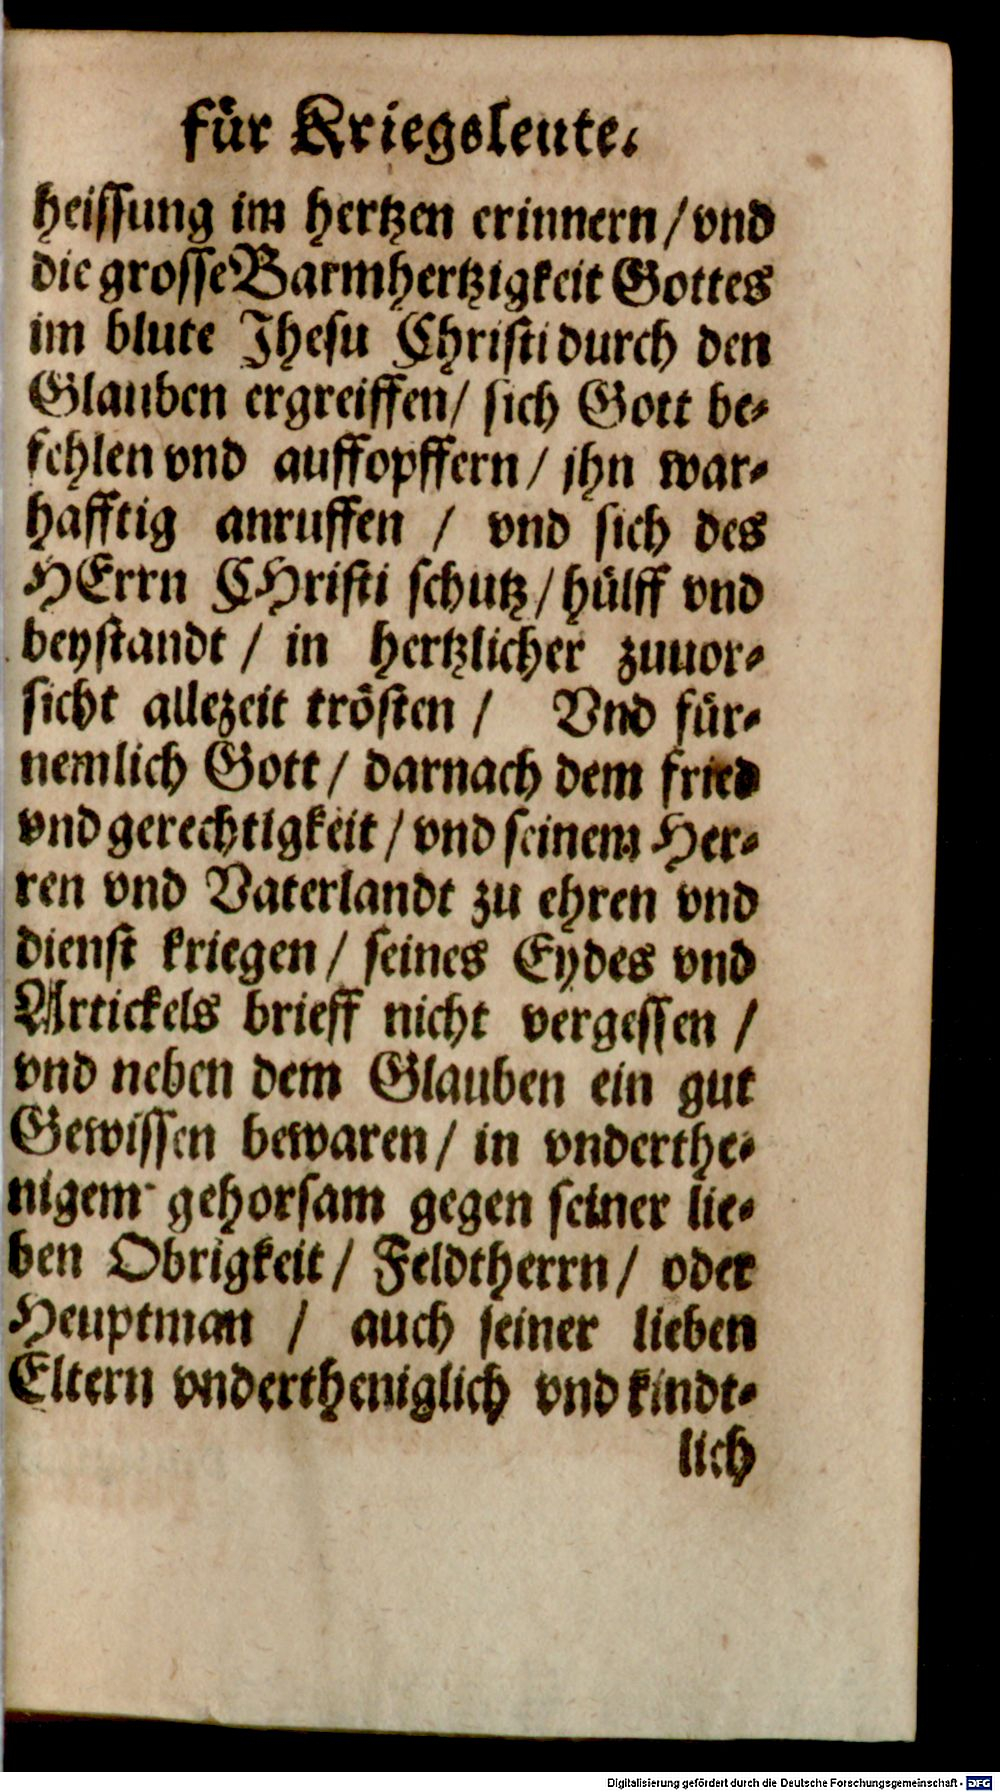 für Kriegsleute.
heissung im hertzen erinnern / vnd
die grosse Barmhertzigkeit Gottes
im blute Jhesu Christi durch den
Glauben ergreiffen / sich Gott be-
fehlen vnd auffopffern / jhn war-
hafftig anruffen / vnd sich des
HErrn CHristi schutz / hülff vnd
beystandt / in hertzlicher zuuor-
sicht allezeit trösten / Vnd für-
nemlich Gott / darnach dem fried
vnd gerechtigkeit / vnd seinem Her-
ren vnd Vaterlandt zu ehren vnd
dienst kriegen / seines Eydes vnd
Artickels brieff nicht vergessen /
vnd neben dem Glauben ein gut
Gewissen bewaren / in vnderthe-
nigem gehorsam gegen seiner lie-
ben Obrigkeit / Feldtherrn / oder
Heuptman / auch seiner lieben
Eltern vndertheniglich vnd kindt-
lich
Digitalisierung gefördert durch die Deutsche Forschungsgemeinschaft - DFG